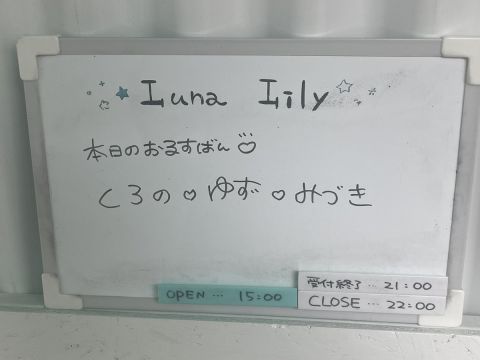 Luna Lily
本日のおるすばん♡
くろの♡ゆず♡みづき
OPEN … 15:00
受付終了 … 21:00
CLOSE … 22:00